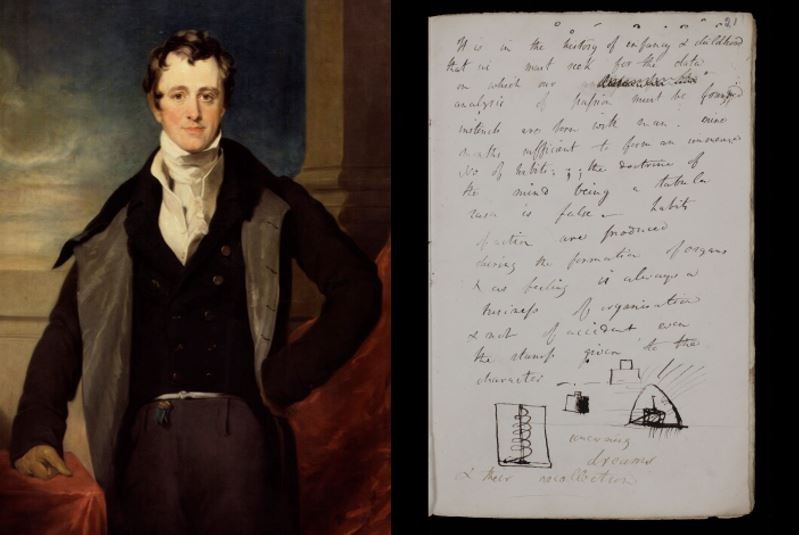 21
It is in the history of infancy & childhood
that we must seek for the data
on which our
analysis of passion must be formed
instincts are born with man. nine
months sufficient to form an immense
No of habits; ; the doctrine of
the mind being a tabula
rasa is false _ habits
of action are produced
during the formation of organs
& as feeling is always a
business of organisation
& not of accident even
the stamp given to the
character
dreams
& their recollection